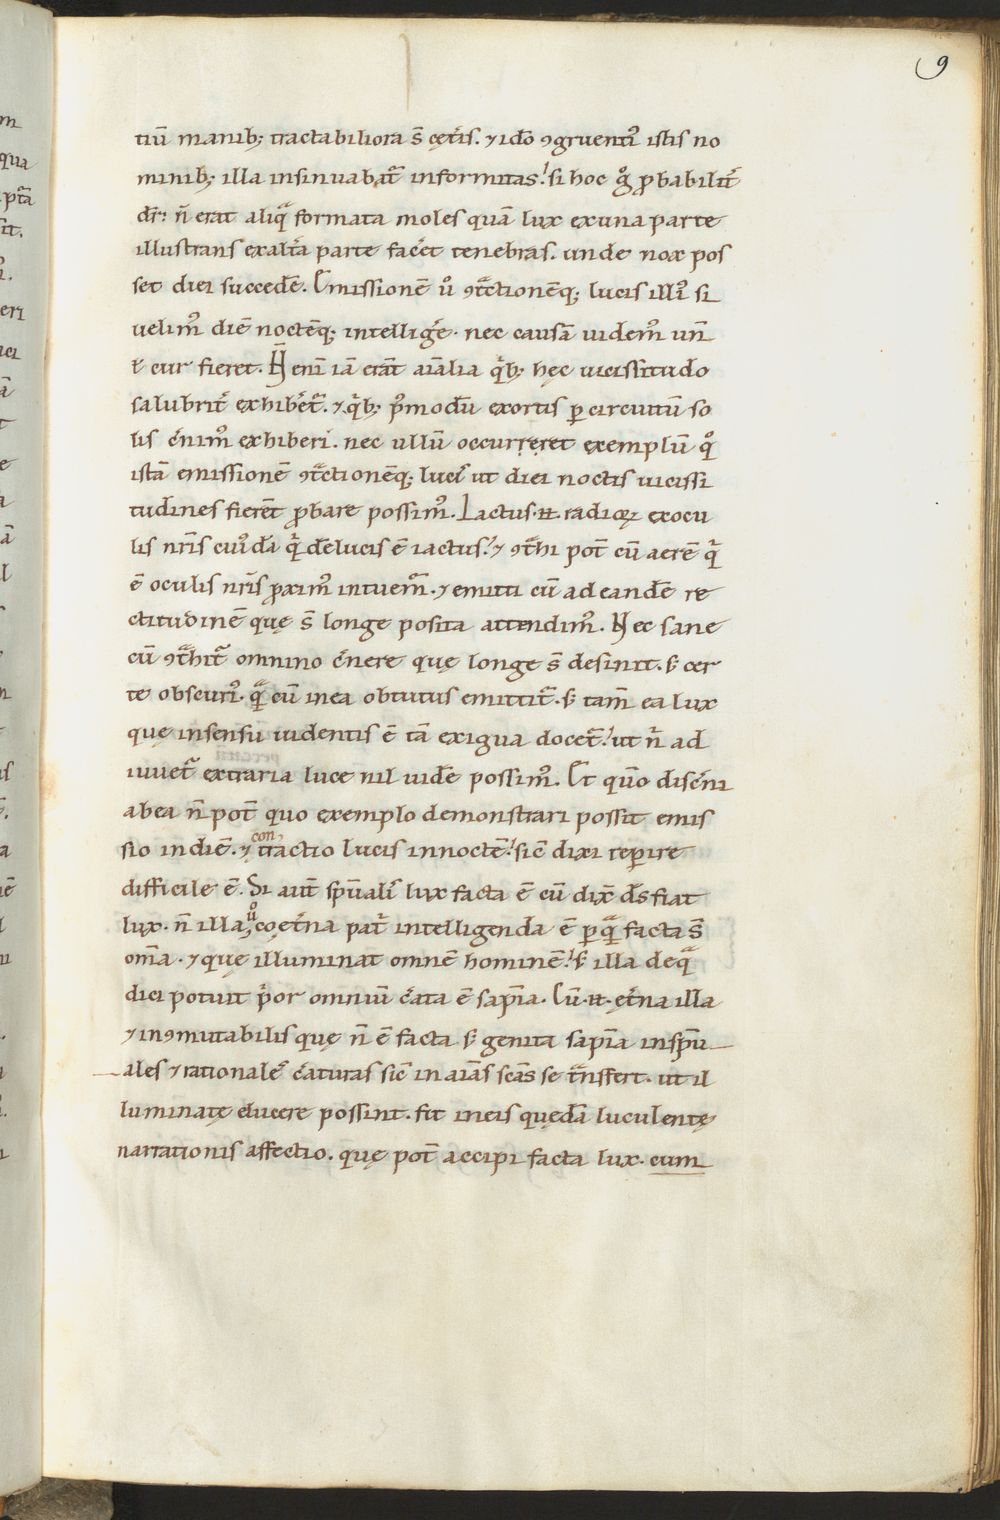 9
tiū manib; tractabiliora s̄ cęt̄is. ⁊ idō ꝯgruenti᷒ istis no
minib; illa insinuabat̄ informitas. si hoc g̊ ꝓbabilit̄
dr̄. n̄ erat aliq̄ formata moles quā lux ex una parte
illustrans ex alt̄a parte facēt tenebras. unde nox pos
set diei succedē. Emissionē ů ꝯt̄ctionēq; lucis illi᷒ si
uelim᷒ diē noctēq; intelligē. nec causā uidem᷒ un̄
ł cur fieret. N̄ eni iā erāt aīalia qⁱb; hęc uicissitudo
salubrit̄ exhibēt̄. ⁊ qⁱb; p᷒modū exortis ꝑ circuitū so
lis c̄nim᷒ exhiberi. nec ullū occurreret exemplū q̊
istā emissionē ꝯt̄ctionēq; lucis ut diei noctis uicissi
tudines fierēt ꝓbare possim᷒. Iactus .n. radioꝝ ex ocu
lis nr̄is cui᷒dā qⁱdē lucis ē iactus. ⁊ ꝯt̄hi pot̄ cū aerē qⁱ
ē oculis nr̄is ꝓxim᷒ intuem̄. ⁊ emitti cū ad eandē re
ctitudinē quę s̄ longe posita attendim᷒. Nec sane
cū ꝯt̄hit̄ omnino c̄nere quę longe s̄ desinit. s; cer
te obscuri᷒. q̄ cū in ea obtutus emittit̄. s; tam̄ ea lux
quę in sensu uidentis ē tā exigua docet̄. ut nⁱ ad
iuuet̄ extraria luce nil uidē possim᷒. Et qm̄o disc̄ni
ab ea n̄ pot̄ quo exemplo demonstrari possit emis
sio in diē. ⁊ con
tractio lucis in noctē. sic̄ dixi reꝑire
difficile ē. Si aut̄ spūalis lux facta ē cū dix̄ ds̄ fiat
lux. n̄ illa ů coęt̄na pat̄ intelligenda ē ꝑ q̄ facta s̄
om̄ia. ⁊ quę illuminat omnē hominē. s; illa de q̄
dici potuit pⁱor omniū c̄ata ē sapīa. Cū .n. ęt̄na illa
⁊ inꝯmutabilis quę n̄ ē facta s; genita sapīa in spū
ales ⁊ rationales c̄aturas sic̄ in aīas scās se t̄nsfert. ut il
luminatę elucere possint. fit in eis quędā luculentę
narrationis affectio. quę pot̄ accipi facta lux. cum